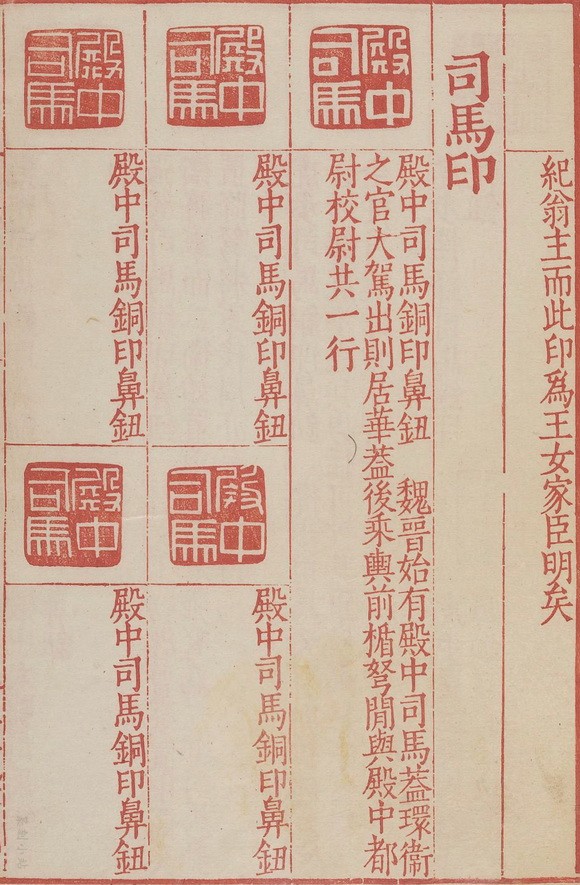 紀翁主而此印爲王女家臣明矣
司馬印
殿中司馬
殿中司馬銅印鼻鈕　魏晉始有殿中司馬葢環衞
之官大駕出則居華葢後乘輿前楯弩閒與殿中都
尉校尉共一行
殿中司馬
殿中司馬銅印鼻鈕
殿中司馬
殿中司馬銅印鼻鈕
殿中司馬
殿中司馬銅印鼻鈕
殿中司馬
殿中司馬銅印鼻鈕